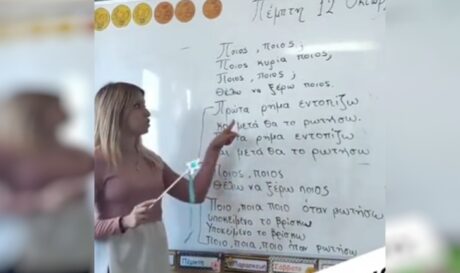 Πέμπτη 12 Οκτωβ
Ποιος, ποιος;
Ποιος κυρία ποιος,
Ποιος, ποιος;
Θέλω να ξέρω ποιος.
Πρώτα ρημα εντοπίζω
και μετά θα το ρωτήσω.
ρημα εντοπίζω
και μετά θα το ρωτήσω
Ποιος, ποιος
Θέλω να ξέρω ποιος
Ποιο, ποια ποιο όταν ρωτήσω
υποκείμενο το βρίσκω
Υποκείμενο το βρίσκω
Ποιο, ποια, ποιο όταν ρωτήσω
Πέμπτη Παρασκευή Σάββατο